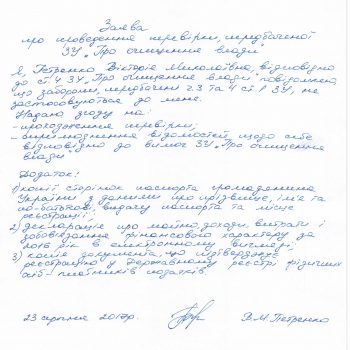 Заява
про проведення перевірки, передбаченої
ЗУ „Про очищення влади"
Я, Петренко Вікторія Миколаївна, відповідно
до ст. 4 ЗУ „Про очищення влади" повідомляю,
що заборони, передбачені ч. 3 та 4 ст. 1 ЗУ, не
застосовуються до мене.
Надаю згоду на:
- проходження перевірки;
- оприлюднення відомостей щодо себе
відповідно до вимог ЗУ „Про очищення
влади
Додаток:
1) копії сторінок паспорта громадянина
України з даними про прізвище, ім'я та
по-батькові, видачу паспорта та місце
реєстрації;
2) декларація про майно, доходи, витрати і
зобов'язання фінансового характеру за
2016 рік в електронному вигляді;
3) копія документа, що підтверджує
реєстрацію у Державному реєстрі фізичних
осіб - платників податків.
23 серпня 2017р. В.М. Петренко